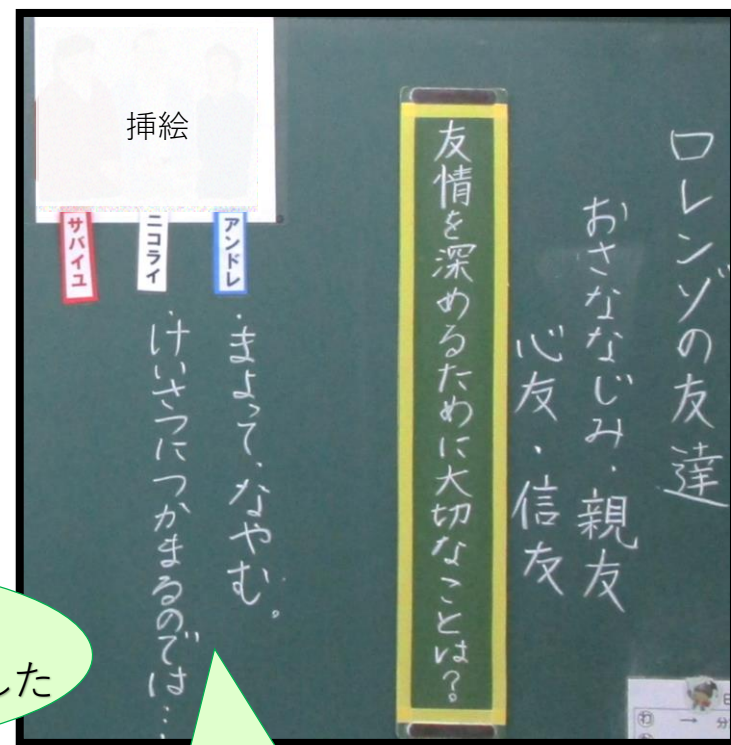 ロレンゾの友達
おさななじみ・親友
心友・信友
友情を深めるために大切なことは?
挿絵
アンドレ
ニコライ
サバイユ
・まよって、なやむ。
・けいさつにつかまるのでは…
した